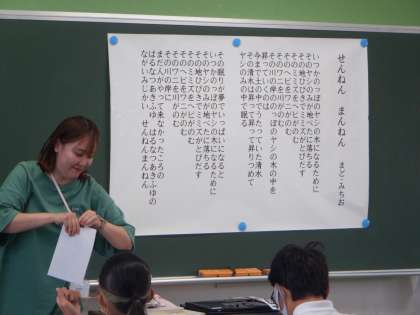 せんねん　まんねん
まど・みちお
いつかのっぽのヤシの木になるために
そのヤシのみが地べたに落ちる
その地ひびきでミミズがとびだす
そのミミズをヘビがのむ
そのヘビをワニがのむ
そのワニを川がのむ
その川の岸ののっぽのヤシの木の中を
昇っていくのは
今まで土の中でうたっていた清水
その清水は昇って昇りつめて
ヤシのみの中で眠る
その眠りが夢でいっぱいになると
いつかのっぽのヤシの木になるために
そのヤシのみが地べたに落ちる
その地ひびきでミミズがとびだす
そのミミズをヘビがのむ
そのヘビをワニがのむ
そのワニを川がのむ
その川の岸に
まだ人がやって来なかったころの
はるなつあきふゆ　はるなつあきふゆの
ながいみじかい　せんねんまんねん